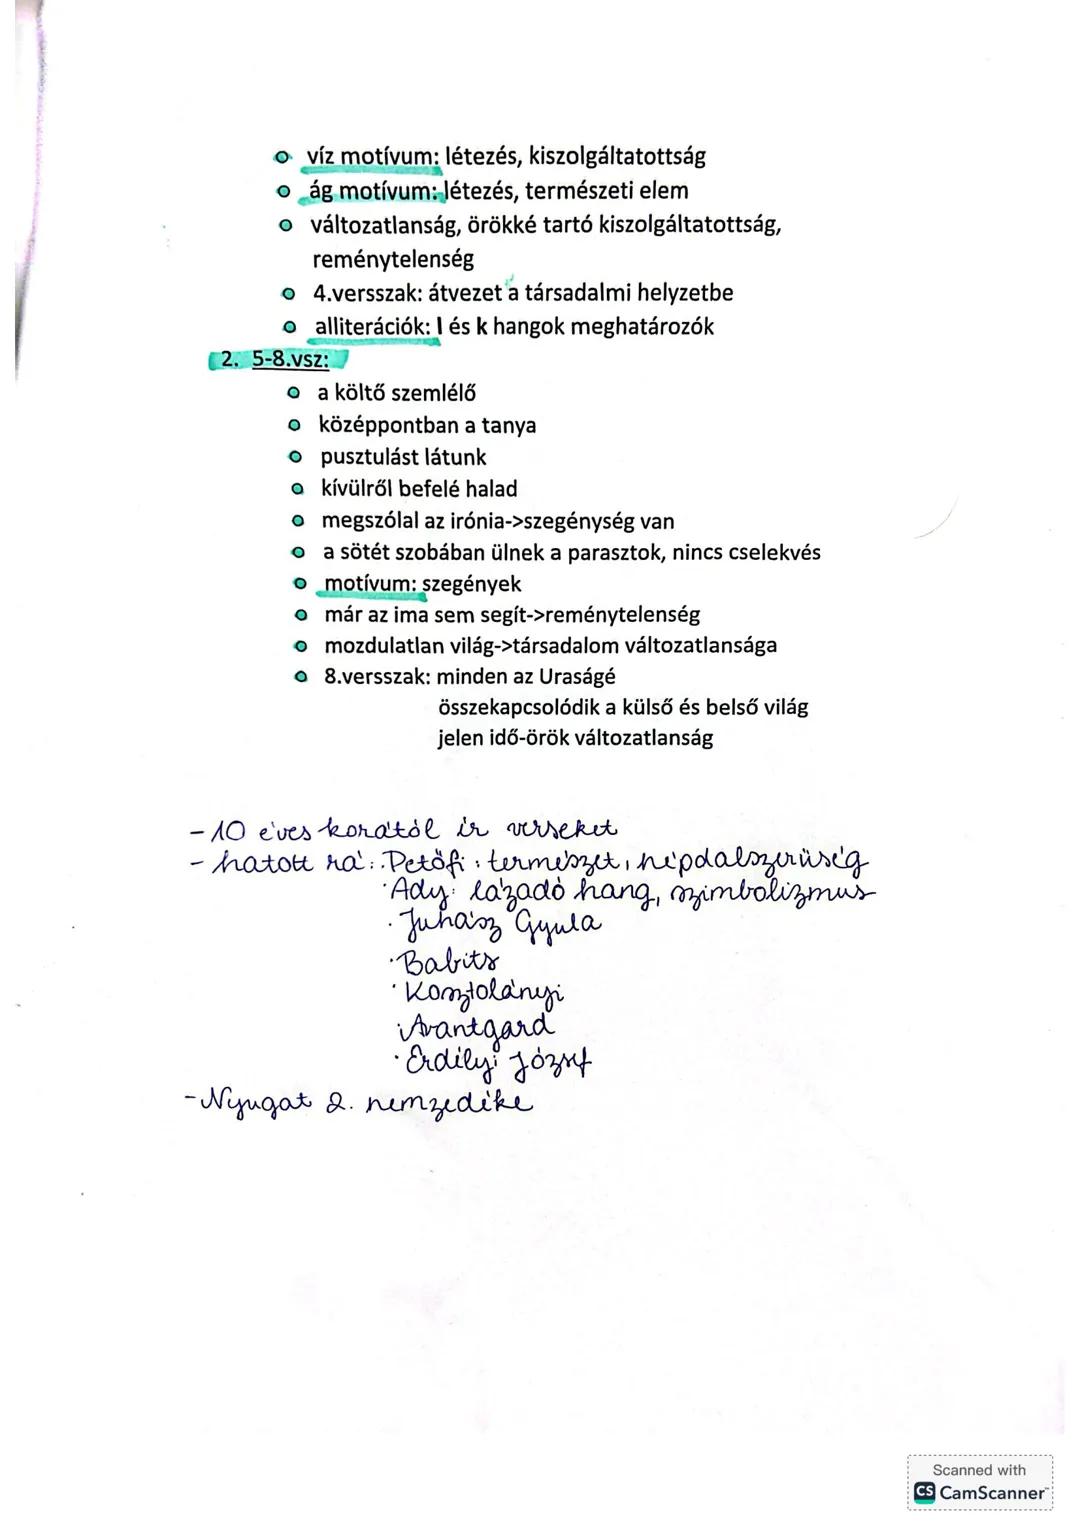 víz motívum: létezés, kiszolgáltatottság
ág motívum: létezés, természeti elem
változatlanság, örökké tartó kiszolgáltatottság,
reménytelenség
4.versszak: átvezet a társadalmi helyzetbe
alliterációk: l és k hangok meghatározók
2. 5-8.vsz:
a költő szemlélő
középpontban a tanya
pusztulást látunk
kívülről befelé halad
megszólal az irónia->szegénység van
a sötét szobában ülnek a parasztok, nincs cselekvés
motívum: szegények
már az ima sem segít->reménytelenség
mozdulatlan világ->társadalom változatlansága
8.versszak: minden az Uraságé
összekapcsolódik a külső és belső világ
jelen idő-örök változatlanság
- 10 éves korától ír verseket
- hatott rá: · Petőfi: természet, népdalszerűség
· Ady: lázadó hang, szimbolizmus
· Juhász Gyula
· Babits
· Kosztolányi
· Avantgard
· Erdélyi József
- Nyugat 2. nemzedéke
Scanned with
CS CamScanner™